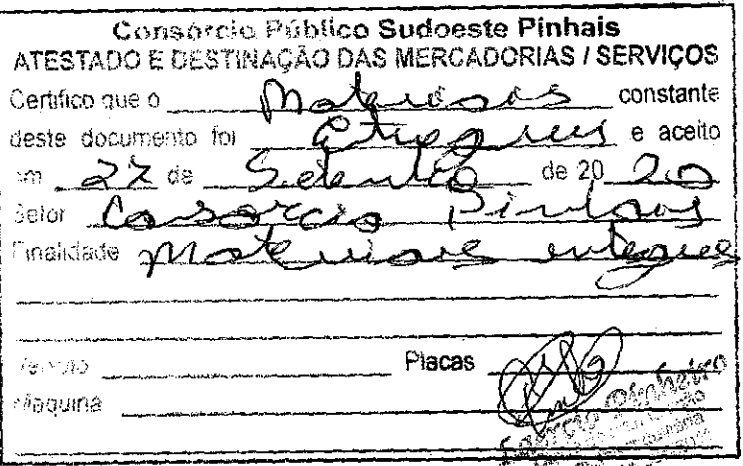 Consórcio Público Sudoeste Pinhais
ATESTADO E DESTINAÇÃO DAS MERCADORIAS / SERVIÇOS
Certifico que o Materiais constante
deste documento foi entregues e aceito
em 27 de Setembro de 2020
Setor Consorcio Pinhais
Finalidade Materiais entregues
Veículo Placas
Máquina
Pinheiro